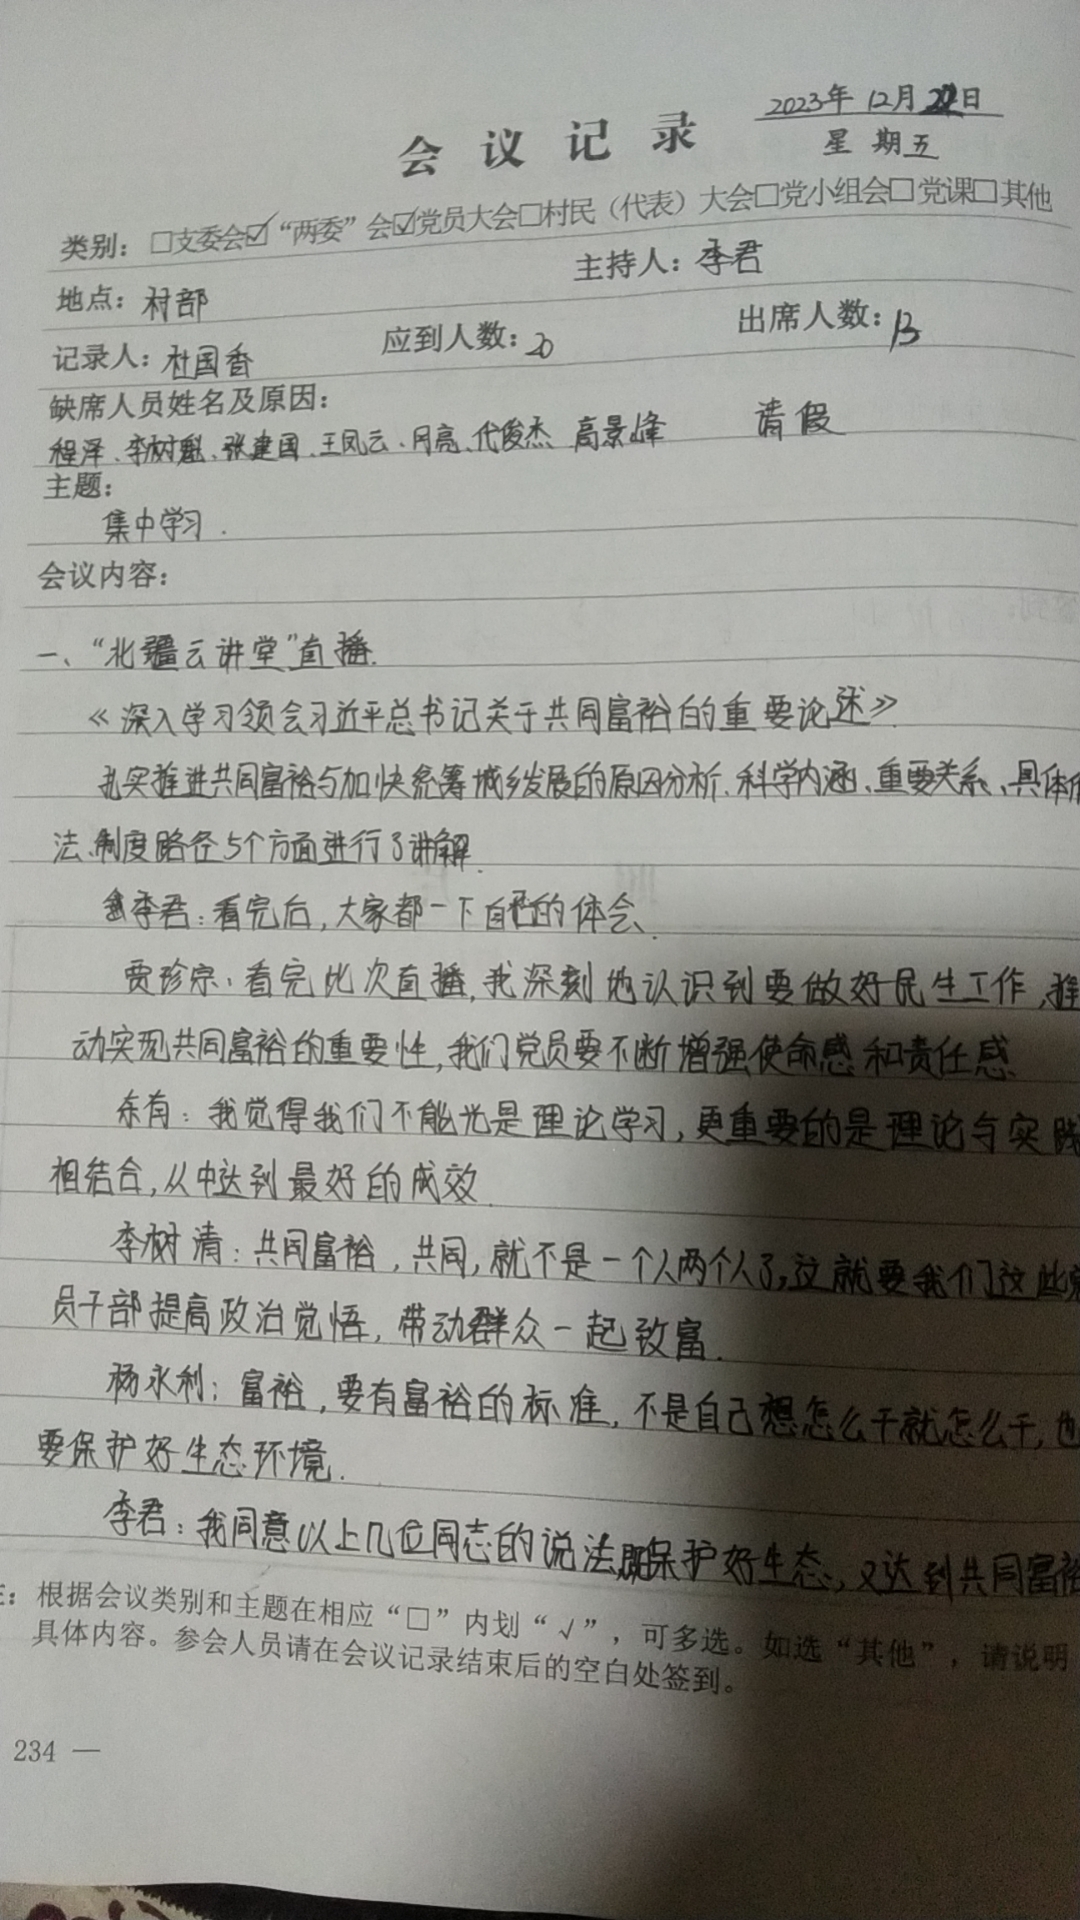 2023年 12月22日
会议记录
星期五
类别：□支委会☑“两委”会☑党员大会□村民（代表）大会□党小组会□党课□其他
地点：村部 主持人：李君
记录人：杜国香 应到人数：20 出席人数：13
缺席人员姓名及原因：
程泽、李树魁、张建国、王凤云、闫亮、代俊杰 高景峰 请假
主题：
集中学习.
会议内容：
一、“北疆云讲堂”直播.
《深入学习领会习近平总书记关于共同富裕的重要论述》
扎实推进共同富裕与加快统筹城乡发展的原因分析、科学内涵、重要关系、具体
法、制度路径5个方面进行了讲解.
李君：看完后，大家都一下自己的体会、
贾珍宗：看完此次直播，我深刻地认识到要做好民生工作，推
动实现共同富裕的重要性，我们党员要不断增强使命感和责任感
东有：我觉得我们不能光是理论学习，更重要的是理论与实践
相结合，从中达到最好的成效.
李树清：共同富裕，共同，就不是一个人两个人了，这就要我们这些党
员干部提高政治觉悟，带动群众一起致富.
杨永利：富裕，要有富裕的标准，不是自己想怎么干就怎么干，也
要保护好生态环境.
李君：我同意以上几位同志的说法，既保护好生态，又达到共同富裕
：根据会议类别和主题在相应“□”内划“√”，可多选。如选“其他”，请说明
具体内容。参会人员请在会议记录结束后的空白处签到。
234 —